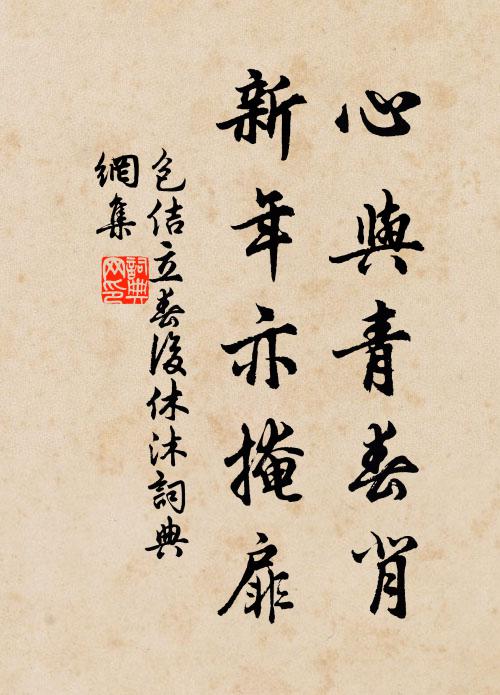 心與青春背
新年亦掩扉
包佶立春後休沐詞典
網集
詞典網印